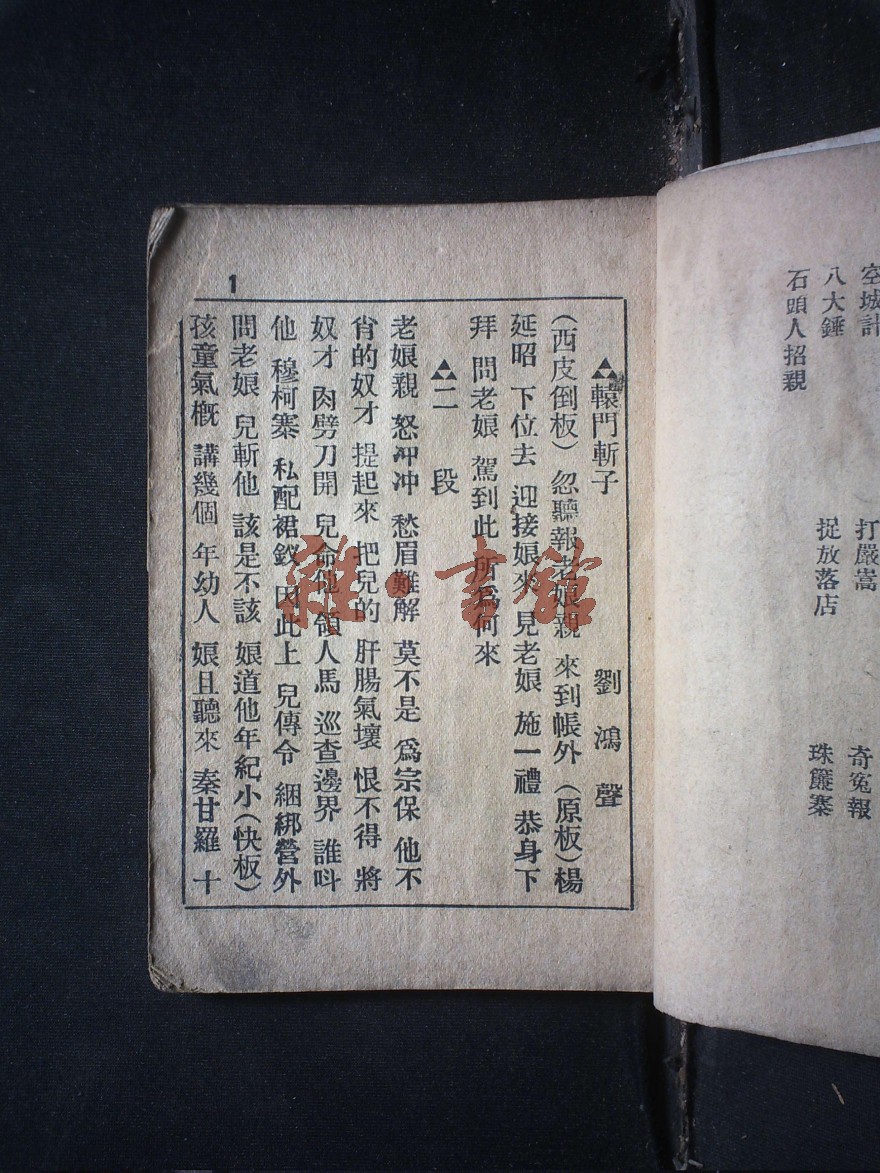 空城計
打嚴嵩
奇冤報
八大錘
捉放落店
珠簾寨
石頭人招親
1
轅門斬子　劉鴻聲
(西皮倒板)　忽聽報老娘親　來到帳外　(原板)楊
延昭　下位去　迎接娘來　見老娘　施一禮　恭身下
拜　問老娘　駕到此　所爲何來
二　段
老娘親　怒冲冲　愁眉難解　莫不是　爲宗保　他不
肖的奴才　提起來　把兒的　肝腸氣壞　恨不得　將
奴才　肉劈刀開　兒命他　領人馬　巡查邊界　誰呌
他　穆柯寨　私配裙釵　因此上　兒傳令　綑綁營外
問老娘　兒斬他　該是不該　娘道他年紀小(快板)
孩童氣槪　講幾個　年幼人　娘且聽來　秦甘羅　十
雜·書館